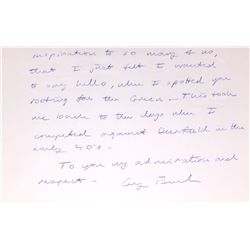 inspiration to so many of us,
that I just felt I wanted
to say hello, when I spotted you
rooting for the Green — This took
me back to the days when I
competed against Deerfield in the
early 40's.
To you my admiration and
respect —